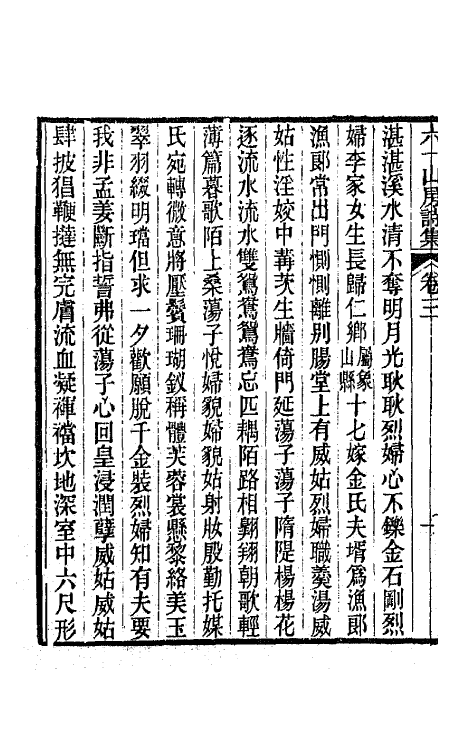 六一山房詩集 卷三 一
湛湛溪水清不奪明月光耿耿烈婦心不鑠金石剛烈
婦李家女生長歸仁鄉屬象山縣十七嫁金氏夫壻爲漁郞
漁郞常出門惻惻離别腸堂上有威姑烈婦職羹湯威
姑性淫姣中冓茨生牆倚門延蕩子蕩子隋隄楊楊花
逐流水流水雙鴛鴦鴛鴦忘匹耦陌路相翺翔朝歌輕
薄篇暮歌陌上桑蕩子悅婦貌婦貌姑射妝殷勤托媒
氏宛轉微意將壓鬢珊瑚釵稱體芙蓉裳懸黎絡美玉
翠羽綴明璫但求一夕歡願脫千金裝烈婦知有夫要
我非孟姜斷指誓弗從蕩子心回皇浸潤孽威姑威姑
肆披猖鞭撻無完膚流血凝褌襠坎地深室中六尺形